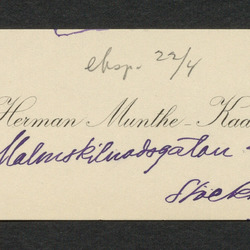 eksp. 22/4
Herman Munthe-Kaa
Malmskilnadsgatan
Stock